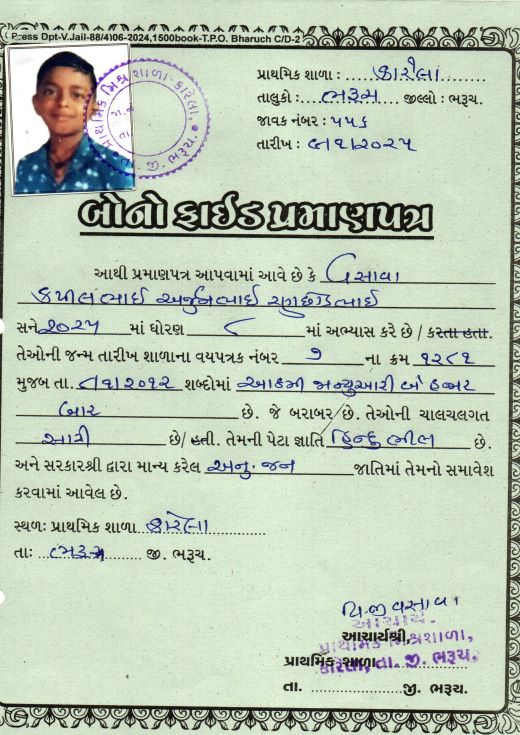 Press Dpt-V.Jail-88/4)06-2024,1500book-T.P.O. Bharuch C/D-2
પ્રાથમિક શાળા : કારેલા
તાલુકો : ભરૂચ જીલ્લો : ભરૂચ.
જાવક નંબર : ૫૫૬
તારીખ : ૮/૧/૨૦૨૫
પ્રાથમિક મિશ્ર શાળા-કારેલા,
જી. ભરૂચ
બોનોફાઈડ પ્રમાણપત્ર
આથી પ્રમાણપત્ર આપવામાં આવે છે કે વસાવા
કપીલભાઈ અર્જુનભાઈ રણછોડભાઈ
સને ૨૦૨૫ માં ધોરણ ૮ માં અભ્યાસ કરે છે / કરતા હતા.
તેઓની જન્મ તારીખ શાળાના વયપત્રક નંબર ૭ ના ક્રમ ૧૨૮૧
મુજબ તા. ૮/૧/૨૦૧૨ શબ્દોમાં આઠમી જાન્યુઆરી બે હજાર
બાર છે. જે બરાબર છે. તેઓની ચાલચલગત
સારી છે/ હતી. તેમની પેટા જ્ઞાતિ હિન્દુ ભીલ છે.
અને સરકારશ્રી દ્વારા માન્ય કરેલ અનુ. જન જાતિમાં તેમનો સમાવેશ
કરવામાં આવેલ છે.
સ્થળ: પ્રાથમિક શાળા કારેલા
તા: ભરૂચ જી. ભરૂચ.
વસાવા
આચાર્ય.
આચાર્યશ્રી,
પ્રાથમિક મિશ્રશાળા,
પ્રાથમિક શાળા
કારેલા, તા. જી. ભરૂચ.
તા. જી. ભરૂચ.